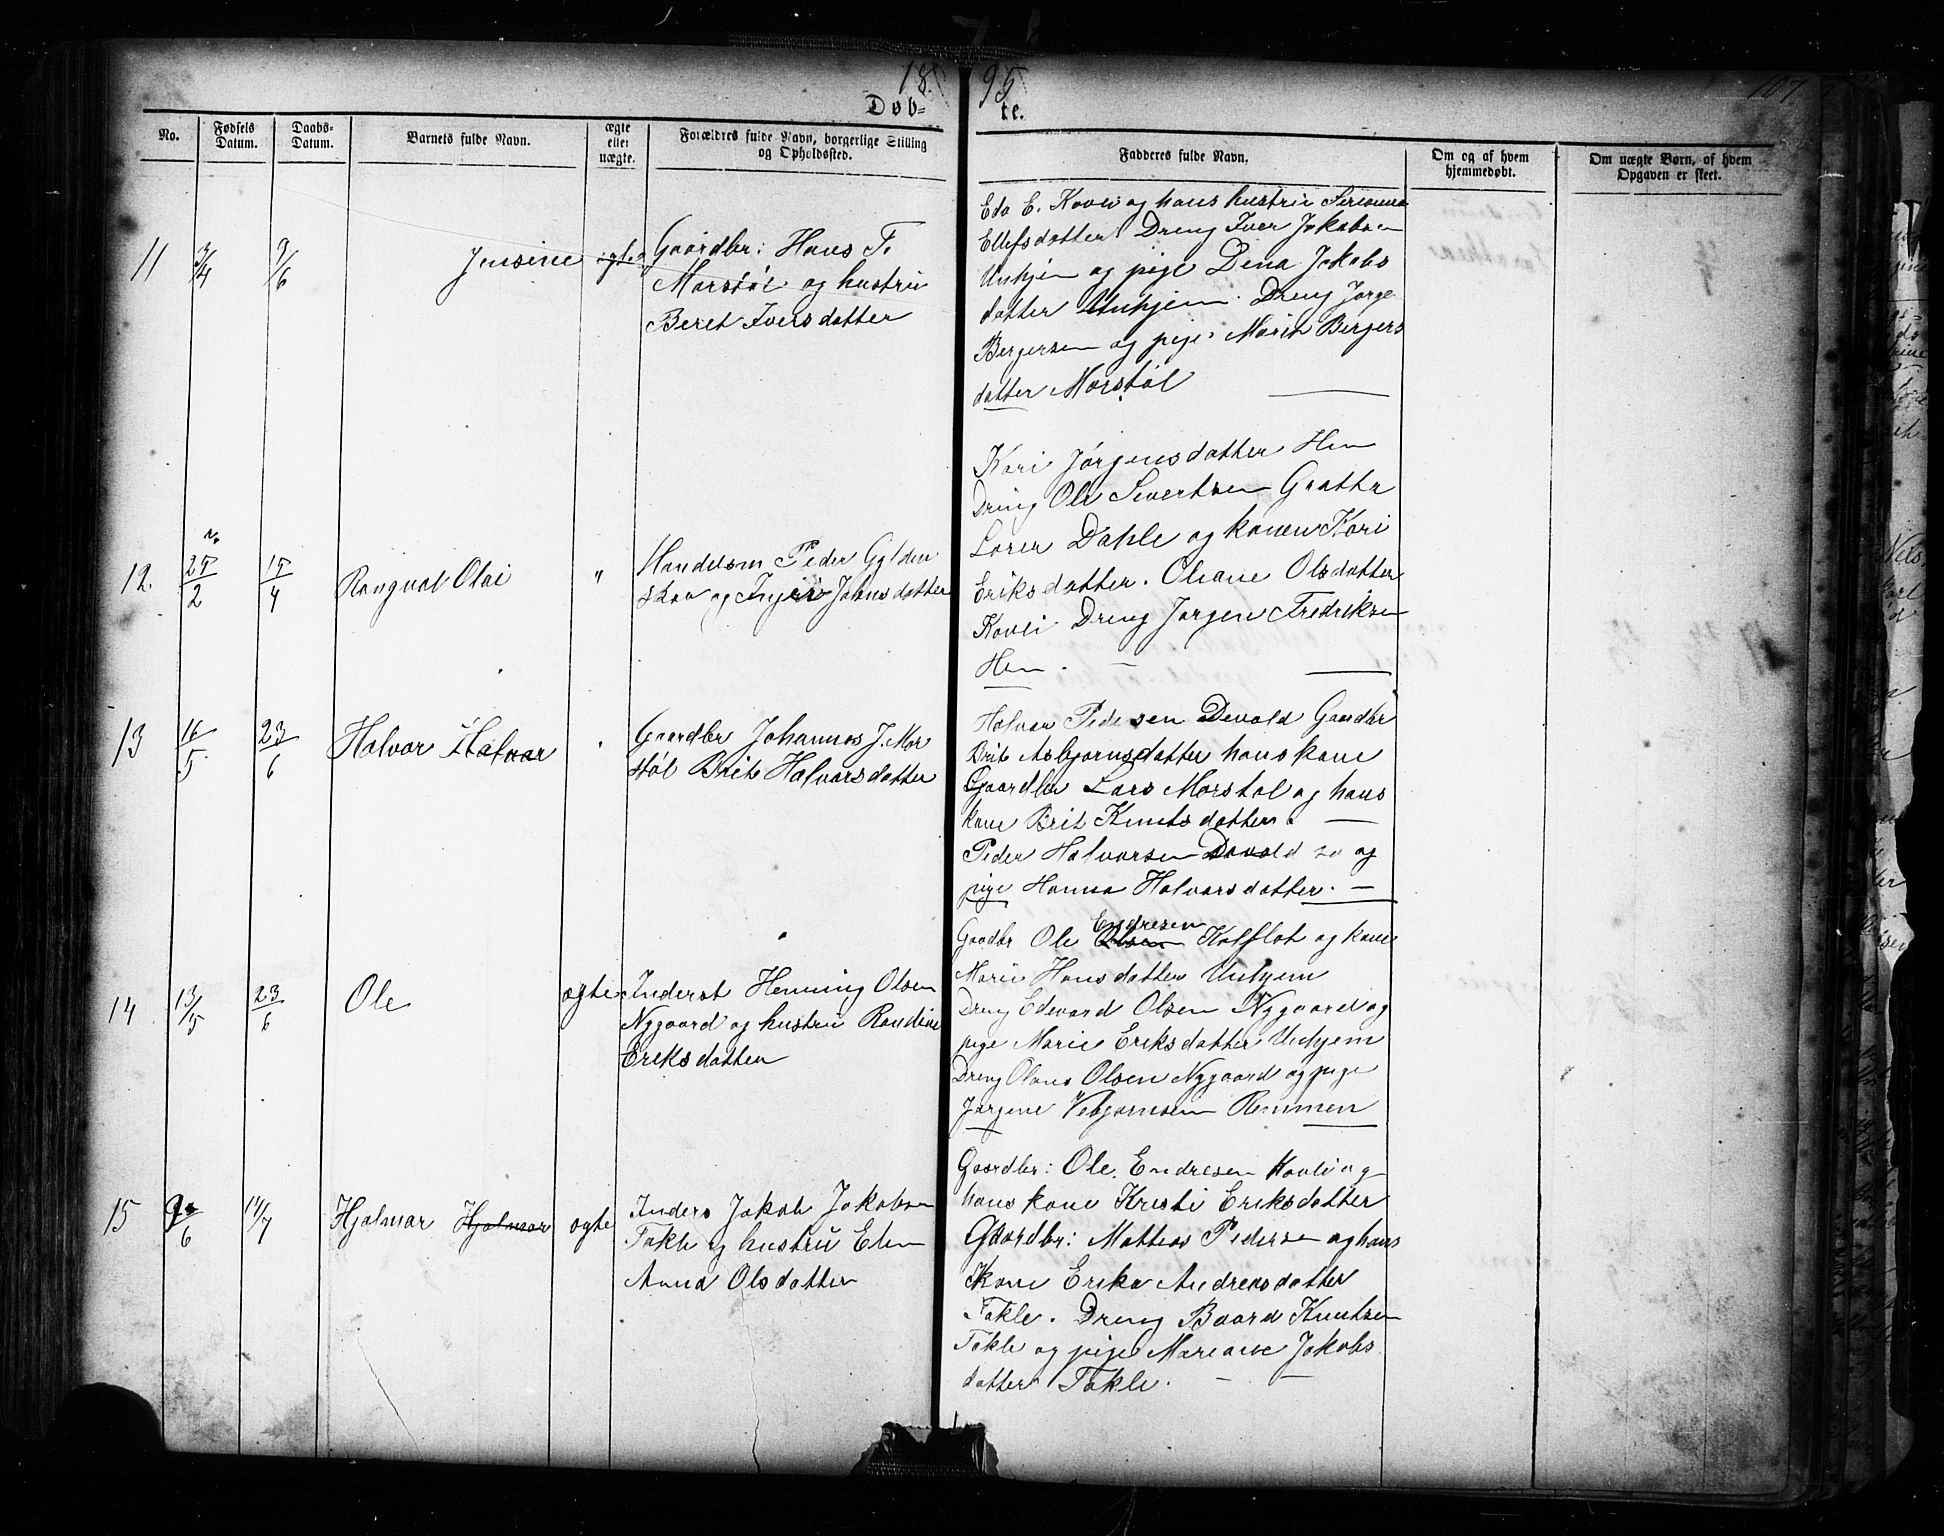 18 95
107
Døbte.
No.
Fødsels Datum.
Daabs-Datum.
Barnets fulde Navn.
ægte eller uægte.
Forældres fulde Navn, borgerlige Stilling og Opholdssted.
Fadderes fulde Navn.
Om og af hvem hjemmedøbt.
Om uægte Børn, af hvem Opgaven er skeet.
11
3/4
9/6
Jensine
ægte
Gaardbr: Hans T.
Morstøl og hustru
Beret Iversdatter
E. Kovli og hans hustru
Ellefsdatter Dreng Iver Jakobsen
Unhjem og pige Dina Jakobs
datter Unhjem. Dreng Jørge
Bergersen og pige Marit Bergers
datter Morstøl
12.
25/2
15/4
Rangval Olai
"
Handelsm Peder Gylden
skov og Jahnsdatter
Kari Jørgensdatter Hen
Dreng Ole Sivertsen
Dahle og konen Kari
Eriksdatter. Oliane Olsdatter
Kovli Dreng Jørgen Fredriksen
Hen.
13
16/5
23/6
Halvor Halvar
Gaardbr Johannes J. Mor
støl Brit Halvorsdatter
Halvor Pedersen Devold Gaardbr
Brit Asbjørnsdatter hans kone
Gaardbr Lars Morstøl og hans
kone Brit Knutsdatter.
Peder Halvorsen Devold og
pige Hanna Halvorsdatter.
14
13/5
23/6
Ole
ægte
Inderst Henning Olsen
Nygaard og hustru Randine
Eriksdatter
Endresen
Gaardbr Ole Olsen Kalflot og kone
Marie Hansdatter Unhjem
Dreng Edevard Olsen Nygaard og
pige Marie Eriksdatter Unhjem
Dreng Olaus Olsen Nygaard og pige
Jørgine Vebjørnsen Remmen
15
/6
14/7
Hjalmar Hjalmar
ægte
Inders Jakob Jakobsen
Tokle og hustru Elen
Anna Olsdatter
Gaardbr: Ole Endresen Kovli og
hans kone Kristi Eriksdatter
Gaardbr: Mattias Pedersen og hans
Kone Erika Andreasdatter
Tokle. Dreng Baard Knutsen
Tokle og pige Mariane Jakobs
datter Tokle.